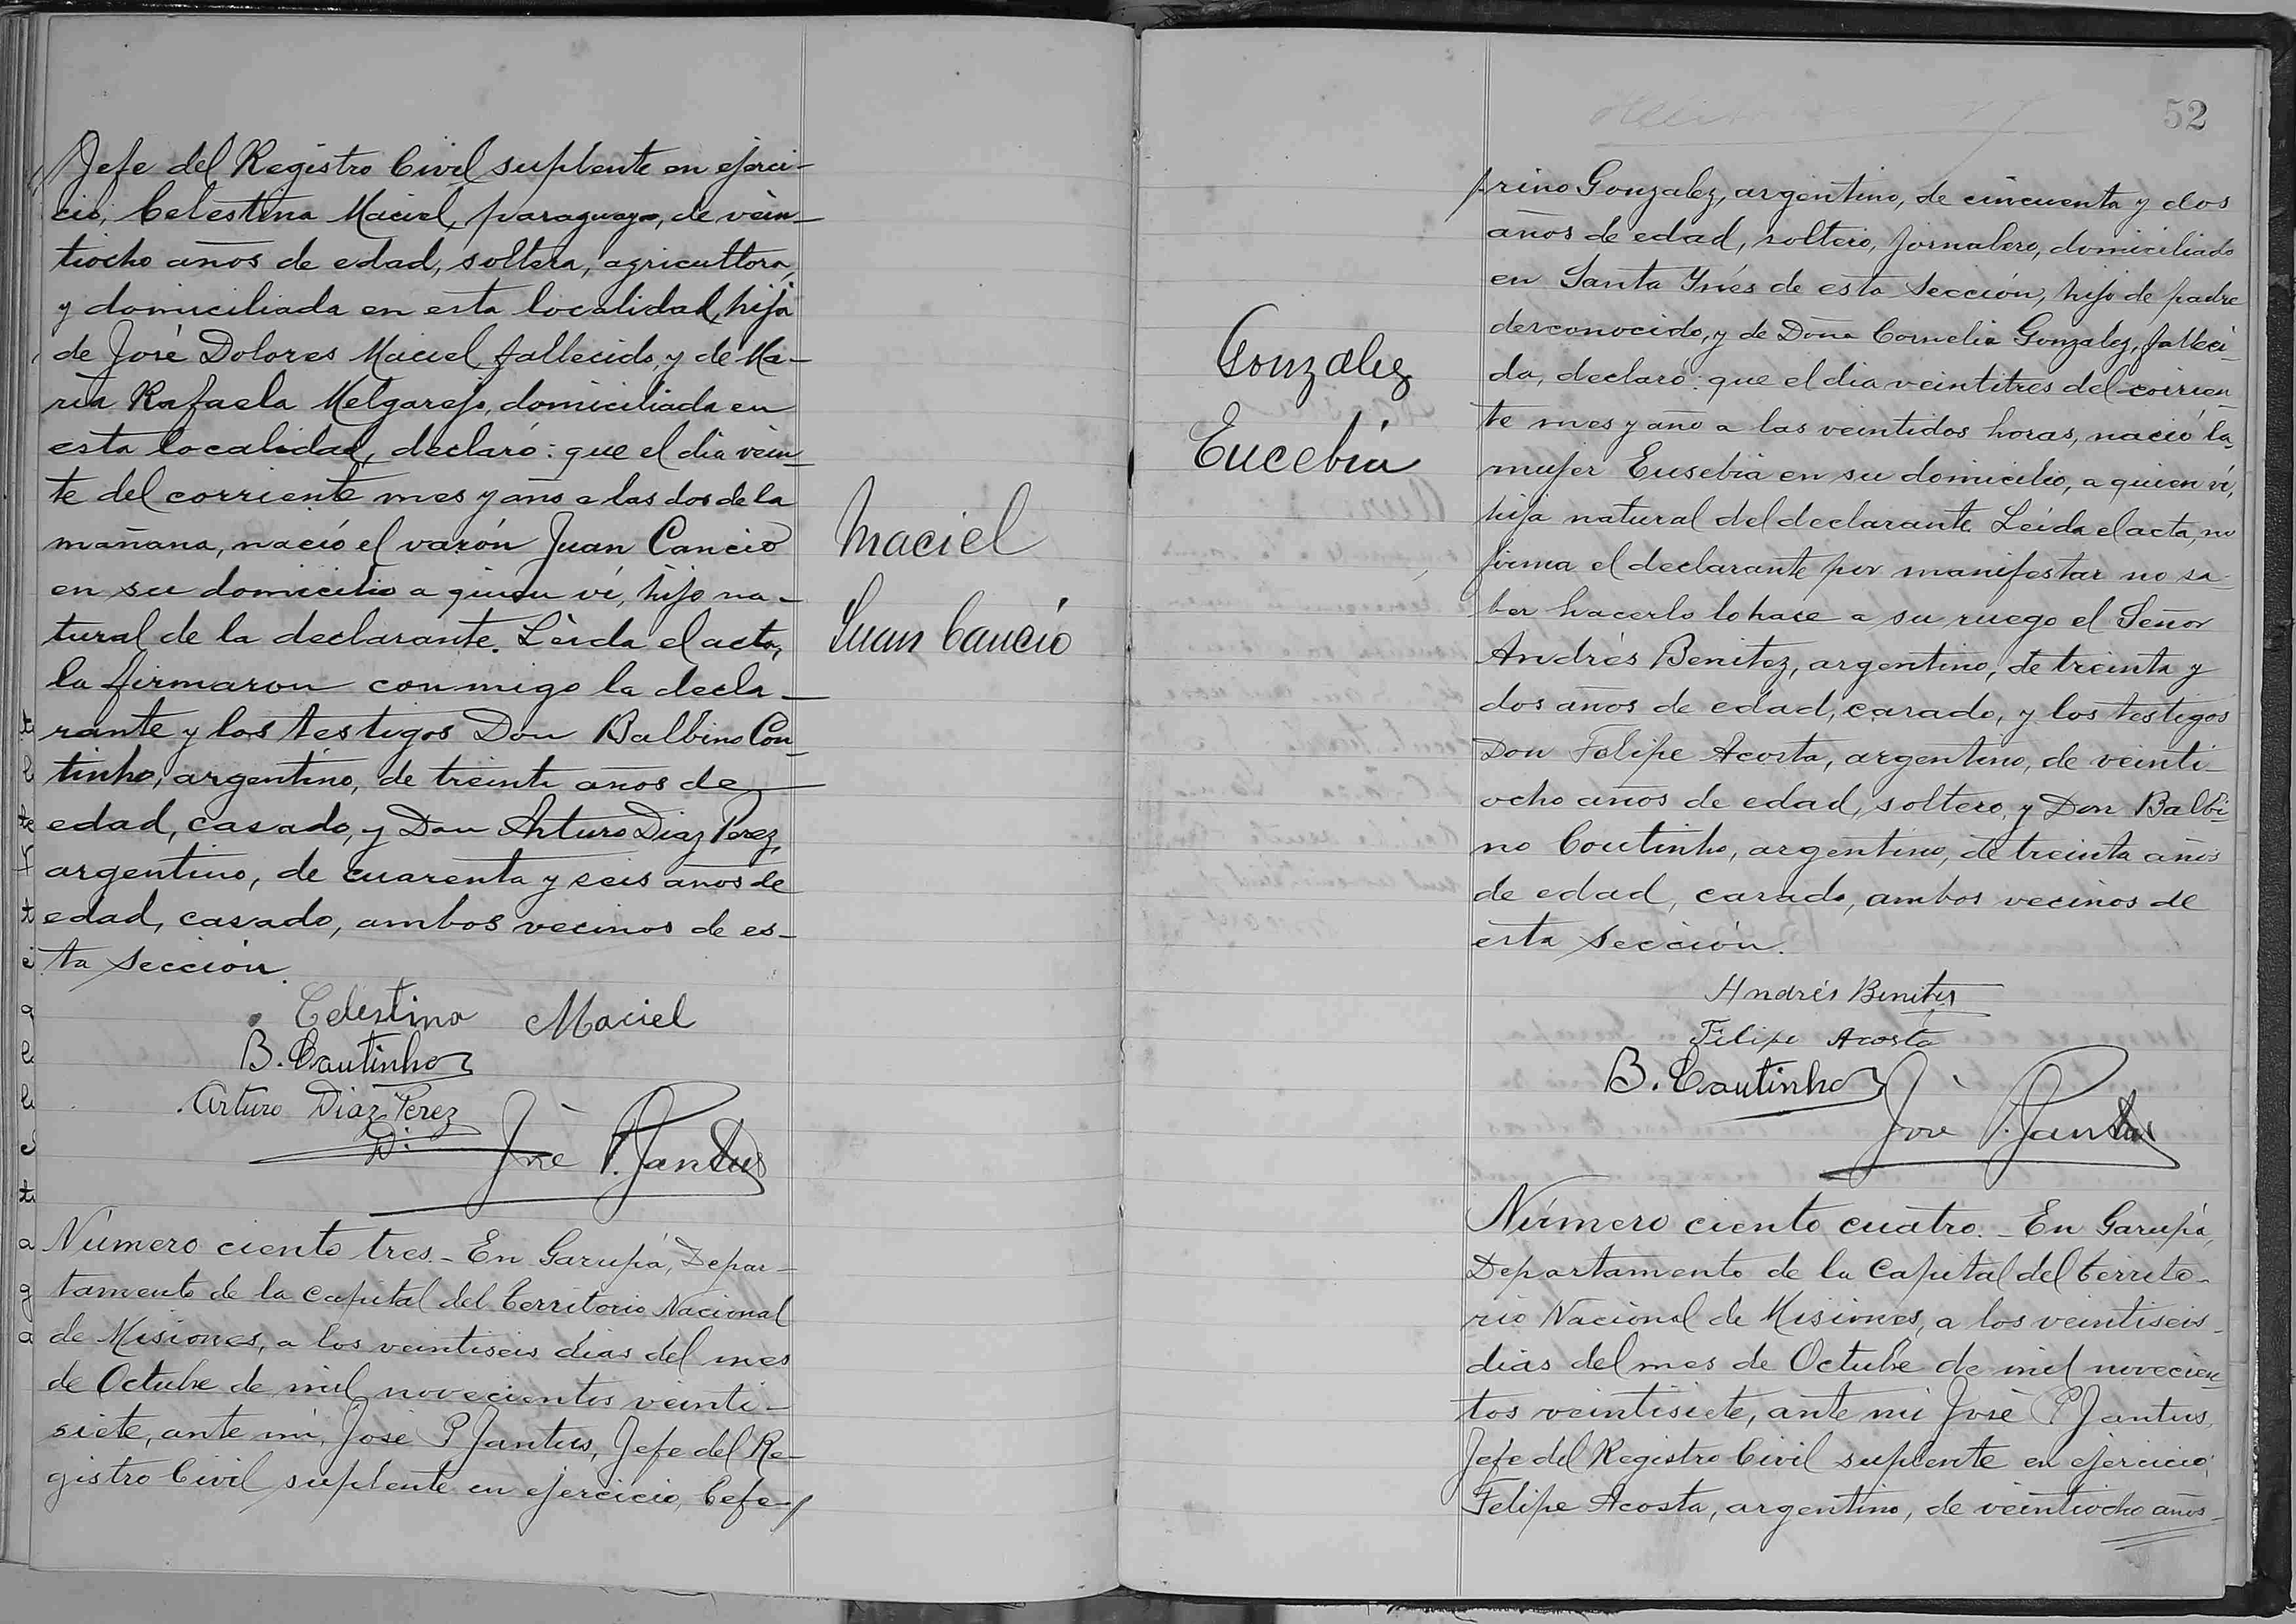 Jefe del Registro Civil suplente en ejerci-
cio, Celestina Maciel, paraguaya, de vein-
tiocho años de edad, soltera, agricultora,
y domiciliada en esta localidad, hija
de José Dolores Maciel, fallecido, y de Ma-
ría Rafaela Melgarejo, domiciliada en
esta localidad, declaró: que el dia vein-
te del corriente mes y año a las dos de la
mañana, nació el varón Juan Cancio
en su domicilio a quien ví, hijo na-
tural de la declarante. Leida el acta,
la firmaron conmigo la decla-
rante y los testigos Don Balbino Con-
tinho, argentino, de treinta años de
edad, casado, y Don Arturo Diaz Perez,
argentino, de cuarenta y seis años de
edad, casado, ambos vecinos de es-
ta sección.
Maciel
Juan Cancio
Celestina Maciel
B. Coutinho
Arturo Diaz Perez
José P. Jantus
Número ciento tres.- En Garupá, Depar-
tamento de la Capital del Territorio Nacional
de Misiones, a los veintiseis dias del mes
de Octubre de mil novecientos veinti-
siete, ante mi, José P Jantus, Jefe del Re-
gistro Civil suplente en ejercicio, Cefe-
52
Gonzalez
Eucebia
prino Gonzalez, argentino, de cincuenta y dos
años de edad, soltero, jornalero, domiciliado
en Santa Ynés de esta sección, hijo de padre
desconocido, y de Doña Cornelia Gonzalez, falleci-
da, declaró: que el dia veintitres del corrien-
te mes y año a las veintidos horas, nació la
mujer Eusebia en su domicilio, a quien ví,
hija natural del declarante. Leida el acta, no
firma el declarante por manifestar no sa-
ber hacerlo lo hace a su ruego el Señor
Andrés Benitez, argentino, de treinta y
dos años de edad, casado, y los testigos
Don Felipe Acosta, argentino, de veinti-
ocho años de edad, soltero, y Don Balbi-
no Coutinho, argentino, de treinta años
de edad, casado, ambos vecinos de
esta sección.
Andrés Benites
Felipe Acosta
B. Coutinho
José P. Jantus
Número ciento cuatro.- En Garupá,
Departamento de la Capital del Territo-
rio Nacional de Misiones, a los veintiseis
dias del mes de Octubre de mil novecien-
tos veintisiete, ante mi José P Jantus,
Jefe del Registro Civil suplente en ejercicio,
Felipe Acosta, argentino, de veintiocho años